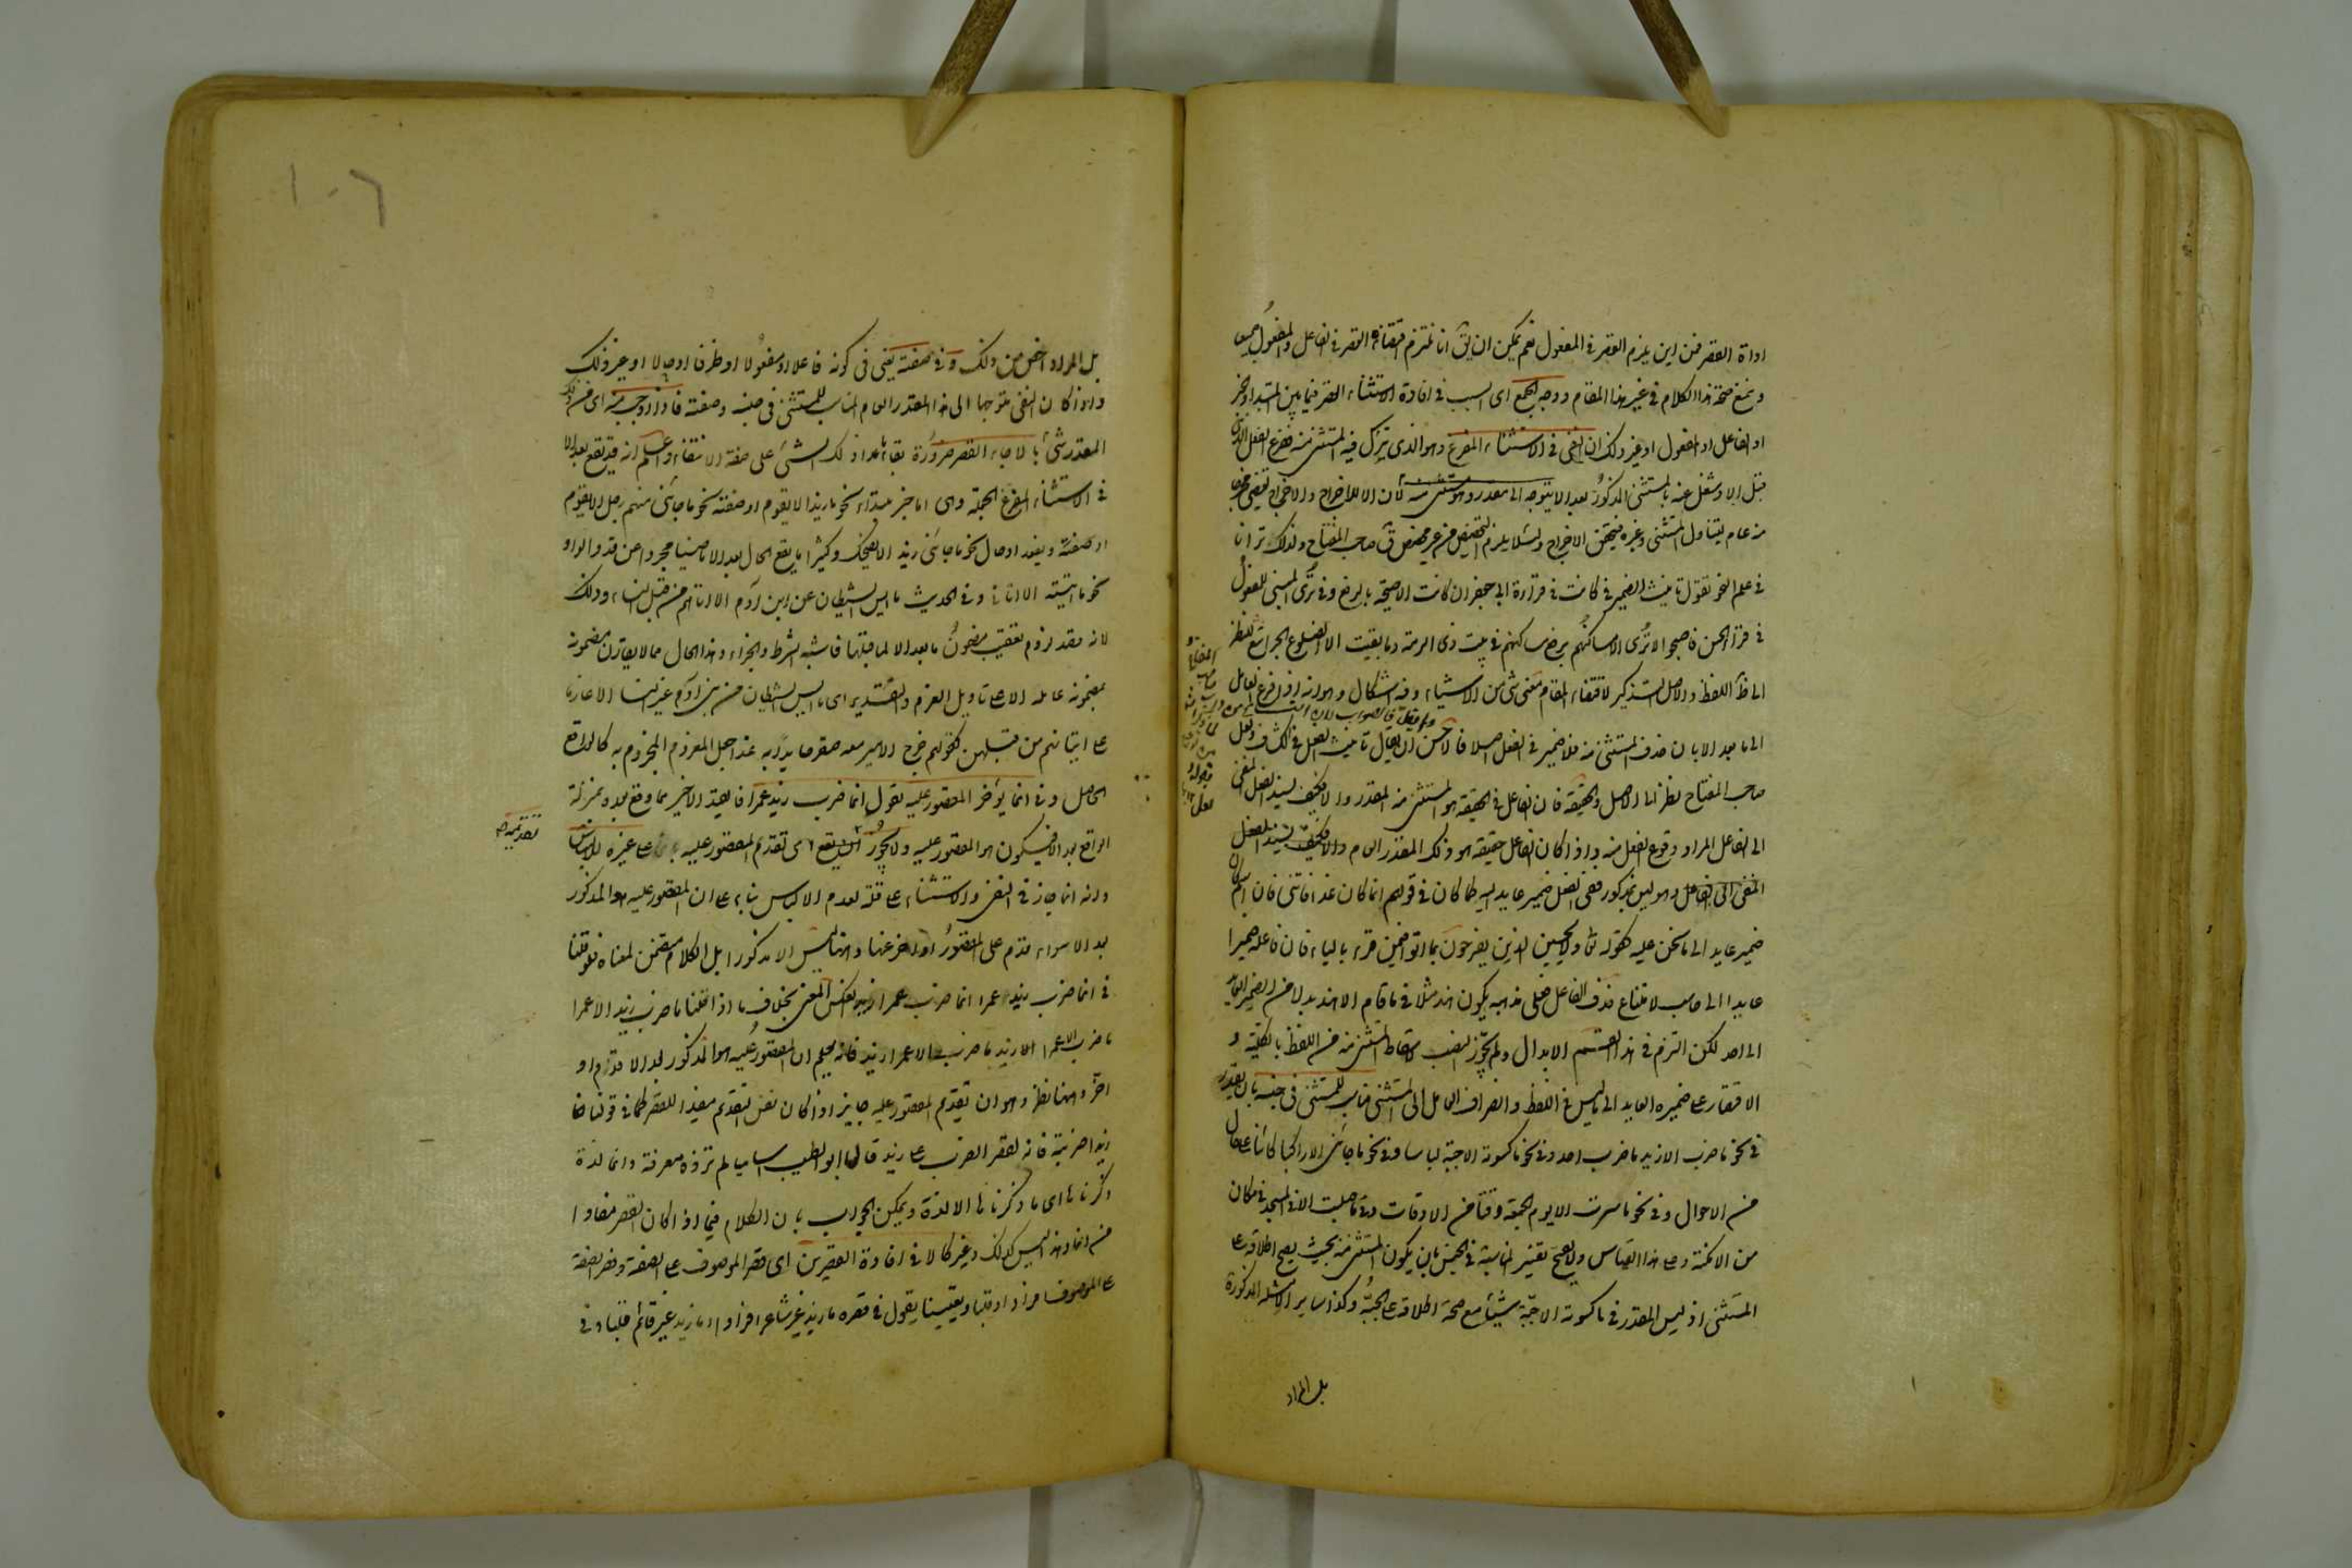 اداة القصر فمن اين يلزم القصر في المفعول نعم يمكن ان يق انا نلتزم القصر في الفاعل والمفعول جميعا
ونمنع صحة هذا الكلام في غير هذا المقام ووجه الجميع اى السبب في افادة الاستثناء القصر فيما بين المبتدا والخبر
او الفاعل او المفعول او غير ذلك ان النفى في الاستثناء المفرغ وهو الذى يترك فيه المستثنى منه ففرغ الفعل الذى
قبل الا وشغل عنه بالمستثنى المذكور بعد الا يتوجه الى مقدر وهو مستثنى منه لأن الا للاخراج والاخراج يقتضى مخرجا
منه عام يتناول المستثنى وغيره فيتحقق الاخراج ولئلا يلزم التخصيص من غير مخصص ق صاحب المفتاح ولذلك ترانا
في علم النحو نقول تأنيث الضمير في كانت في قراءة ابى جعفر ان كانت الا صيحة بالرفع وفى ترى المبنى للمفعول
في قرأ الحسن فاصبحوا لا ترى الا مساكنهم برفع مساكنهم وفى بيت ذى الرمة وما بقيت الا الضلوع الجراشع للنظر
الى ظاهر اللفظ والاصل التذكير لاقتضاء المقام معنى شئ من الاشياء وفيه اشكال وهو انه اذا فرغ العامل
الى ما بعد الا بان حذف المستثنى منه فلا ضمير في الفعل اصلا فالاحسن ان يقال تأنيث الفعل في الكشاف ولعل
صاحب المفتاح نظر الى الاصل والحقيقة فان الفاعل في الحقيقة هو المستثنى منه المقدر والا فكيف يسند الفعل المنفى
الى الفاعل المراد وقوع الفعل منه واذا كان الفاعل حقيقة هو ذلك المقدر العام والا فكيف يسند الفعل
المنفى الى الفاعل وهو ليس بمذكور ففى الفعل ضمير عايد اليه كما كان في قولهم اذا كان غدا فأتنى فان اسم كان
ضمير عايد الى ما نحن عليه كقوله تعالى ولا يحسبن الذين يفرحون بما اتوا فيمن قرء بالياء فان فاعله ضميرا
عايدا الى حاسب لامتناع حذف الفاعل فعلى مذهبه يكون هند مثلا في ما قام الا هند بدلا من الضمير العايد
الى احد لكن التزم في هذا القسم الابدال ولم يجوز النصب لاسقاط المستثنى منه من اللفظ بالكلية و
الاقتصار على ضميره العايد الى ما ليس في اللفظ وانصراف العامل الى المستثنى مناسب للمستثنى في جنسه بان يقدر
في نحو ما ضرب الا زيد ما ضرب احد وفى نحو ما كسوته الا جبة لباسا وفى نحو ما جاءنى الا راكبا كائنا على حال
من الاحوال وفى نحو ما سرت الا يوم الجمعة وقتا من الاوقات وفى ما صليت الا في المسجد في مكان
من الامكنة وعلى هذا القياس ولا يصح تفسير المناسبة في الجنس بان يكون المستثنى منه بحيث يصح اطلاقه على
المستثنى اذ ليس المقدر في ما كسوته الا جبة شيئا مع صحة اطلاقه على الجبة وكذا ساير الامثلة المذكورة
بل المراد
بل المراد اخص من ذلك وفى صفته يعنى في كونه فاعلا او مفعولا او ظرفا او حالا او غير ذلك
واذا كان النفى متوجها الى هذا المقدر العام المناسب للمستثنى في جنسه وصفته فاذا اوجب منه اى من ذلك
المقدر شئ بالا جاء القصر ضرورة بقاء ما عدا ذلك الشئ على صفة الانتفاء واعلم انه قد تقع بعد الا
في الاستثناء المفرغ الجملة وهى اما خبر مبتداء نحو ما زيد الا يقوم او صفة نحو ما جاءنى منهم رجل الا يقوم
او يقعد او حال نحو ما جاءنى زيد الا يضحك وكثيرا ما يقع الحال بعد الا ماضيا مجردا عن قد والواو
نحو ما اتيته الا اتانى وفى الحديث ما ايس الشيطان من ابن آدم الا اتاهم من قبل النساء وذلك
لانه قصد لزوم تعقيب مضمون ما بعد الا لما قبلها فاشبه الشرط والجزاء وهذا الحال مما لا يقارن مضمونه
بمضمون عامله الا على تأويل العزم والتقدير اى ما ايس الشيطان من بنى آدم غير النساء الا عازما
على اتيانهم من قبلهن كقولهم خرج الامير معه صقر صايدا به غدا جعل المعزوم المجزوم به كالواقع
الحاصل وفى انما يؤخر المقصور عليه تقول انما ضرب زيد عمرا فالقيد الاخير مما وقع بعده بمنزلة
الواقع بعد الا فيكون هو المقصور عليه ولا يجوز تقديمه اى تقديم المقصور عليه بانما على غيره للالتباس
وانه انما جاز في النفى والاستثناء على قلة لعدم الالباس بناء على ان المقصور عليه هو المذكور
بعد الا سواء قدم على المقصور او اخر عنها وههنا ليس الا مذكورا بل الكلام متضمن لمعناه فلو قلنا
في انما ضرب زيد عمرا انما ضرب عمرا زيد انعكس المعنى بخلاف ما اذا قلنا ما ضرب زيد الا عمرا
ما ضرب عمرا الا زيد ما ضرب الا عمرا زيد فانه يعلم ان المقصور عليه هو المذكور بعد الا قدم او
اخر وههنا نظر وهو ان تقديم المقصور عليه جايز اذا كان نفس التقديم مفيدا للقصر كما في قولنا انما
زيدا ضربت فانه لقصر الضرب على زيد قال ابو الطيب اساميا لم تزده معرفة وانما لذة
ذكرناها اى ما ذكرناها الا لذة ويمكن الجواب بان الكلام فيما اذا كان القصر مفادا
من انما وهذا ليس كذلك وغير كالا في افادة القصرين اى قصر الموصوف على الصفة وقصر الصفة
على الموصوف افرادا وقلبا وتعيينا يقول في قصره ما زيد غير شاعر افرادا وما زيد غير قائم قلبا وفى
تقديمه